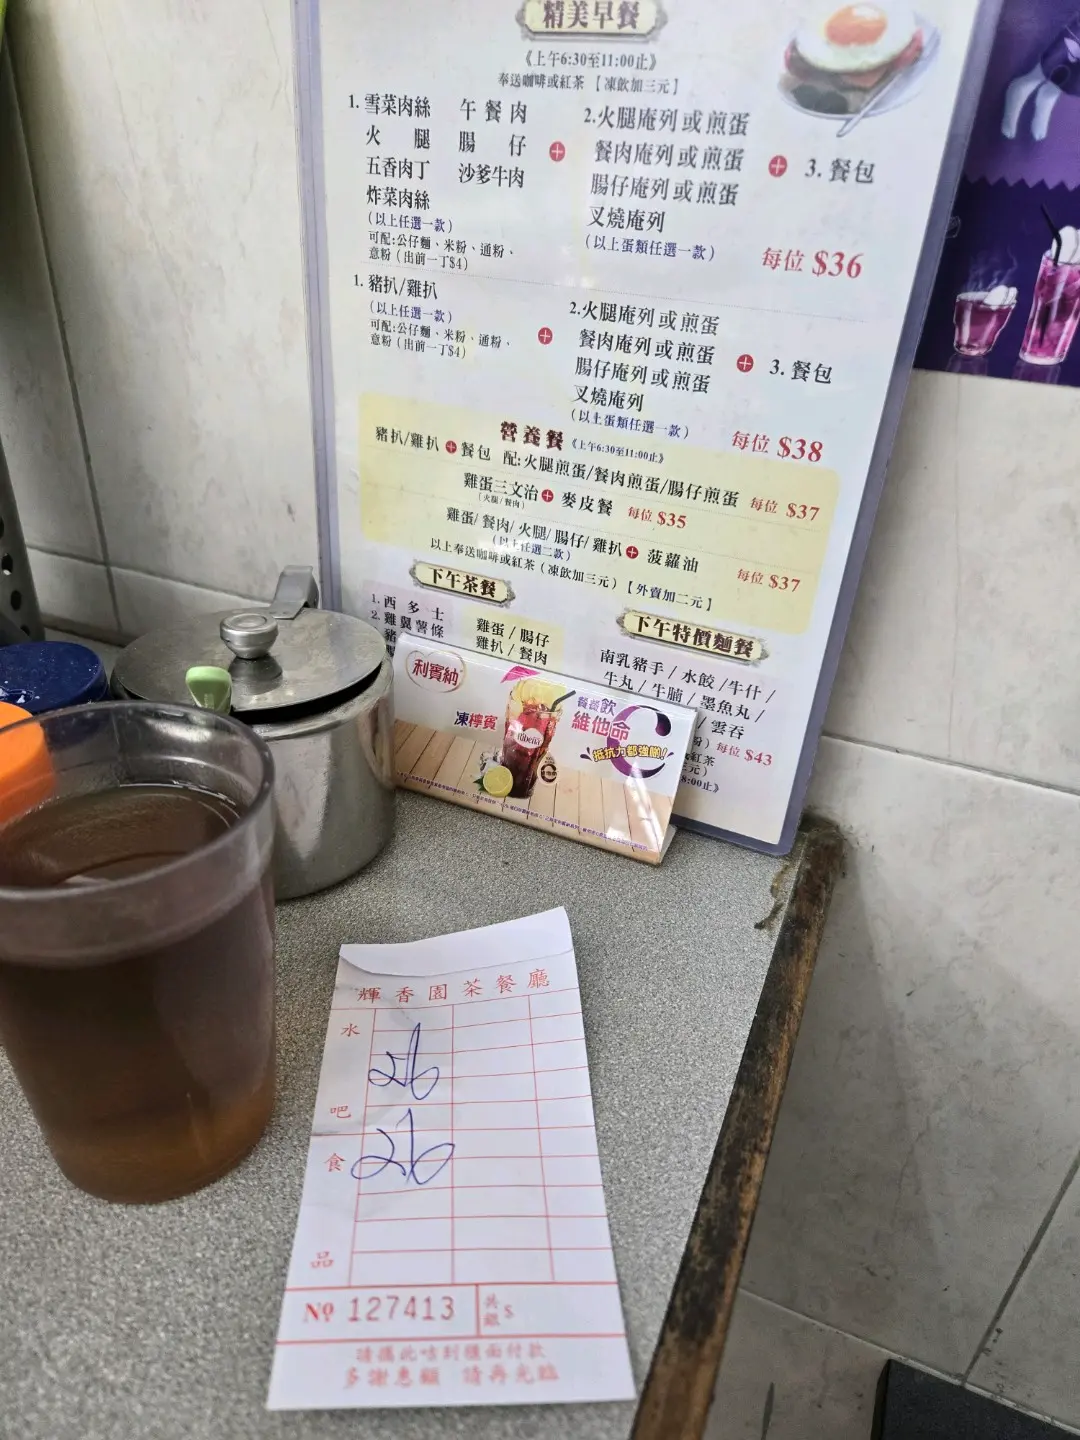 精美早餐
《上午6:30至11:00止》
奉送咖啡或紅茶 【凍飲加三元】
1. 雪菜肉絲 午餐肉
火腿 腸仔
五香肉丁 沙爹牛肉
炸菜肉絲
(以上任選一款)
可配:公仔麵、米粉、通粉、
意粉(出前一丁$4)
+
2.火腿庵列或煎蛋
餐肉庵列或煎蛋
腸仔庵列或煎蛋
叉燒庵列
(以上蛋類任選一款)
+ 3. 餐包
每位 $36
1. 豬扒/雞扒
(以上任選一款)
可配:公仔麵、米粉、通粉、
意粉(出前一丁$4)
+
2.火腿庵列或煎蛋
餐肉庵列或煎蛋
腸仔庵列或煎蛋
叉燒庵列
(以上蛋類任選一款)
+ 3. 餐包
每位 $38
營養餐 《上午6:30至11:00止》
豬扒/雞扒 + 餐包 配:火腿煎蛋/餐肉煎蛋/腸仔煎蛋 每位 $37
雞蛋三文治 + 麥皮餐 每位 $35
(火腿/餐肉)
雞蛋/餐肉/火腿/腸仔/雞扒 + 菠蘿油 每位 $37
(以上任選二款)
以上奉送咖啡或紅茶(凍飲加三元)【外賣加二元】
下午茶餐
1. 西多士
2. 雞翼薯條
豬
雞蛋/腸仔
雞扒/餐肉
下午特價麵餐
南乳豬手/水餃/牛什/
牛丸/牛腩/墨魚丸/
/雲吞
粉) 每位 $43
紅茶
元)
:00止》
利賓納
凍檸賓
Ribena
餐餐飲
維他命
C
抵抗力都強啲!
輝香園茶餐廳
水
吧
食
品
26
26
№ 127413
共銀 $
請攜此咭到櫃面付款
多謝惠顧 請再光臨